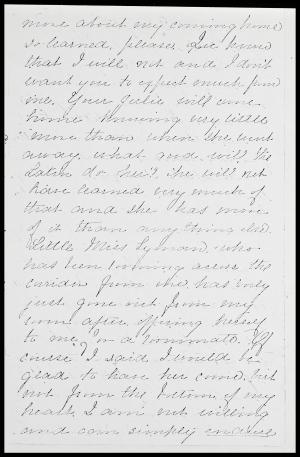 more about my coming home
so learned, please. You know
that I will not and I don't
want you to expect much from
me. Your Julie will come
home knowing very little
more than when she went
away. What good will the
Latin do her? She will not
have learned very much of
that and she has more
of it than any thing else.
Little Miss Lyman, who
has been rooming across the
corridor from me, has only
just gone out from my
room after offering herself
to me, for a roommate. Of
course I said I would be
glad to have her come, but
not from the bottom of my
heart. I am not willing
and can simply endure